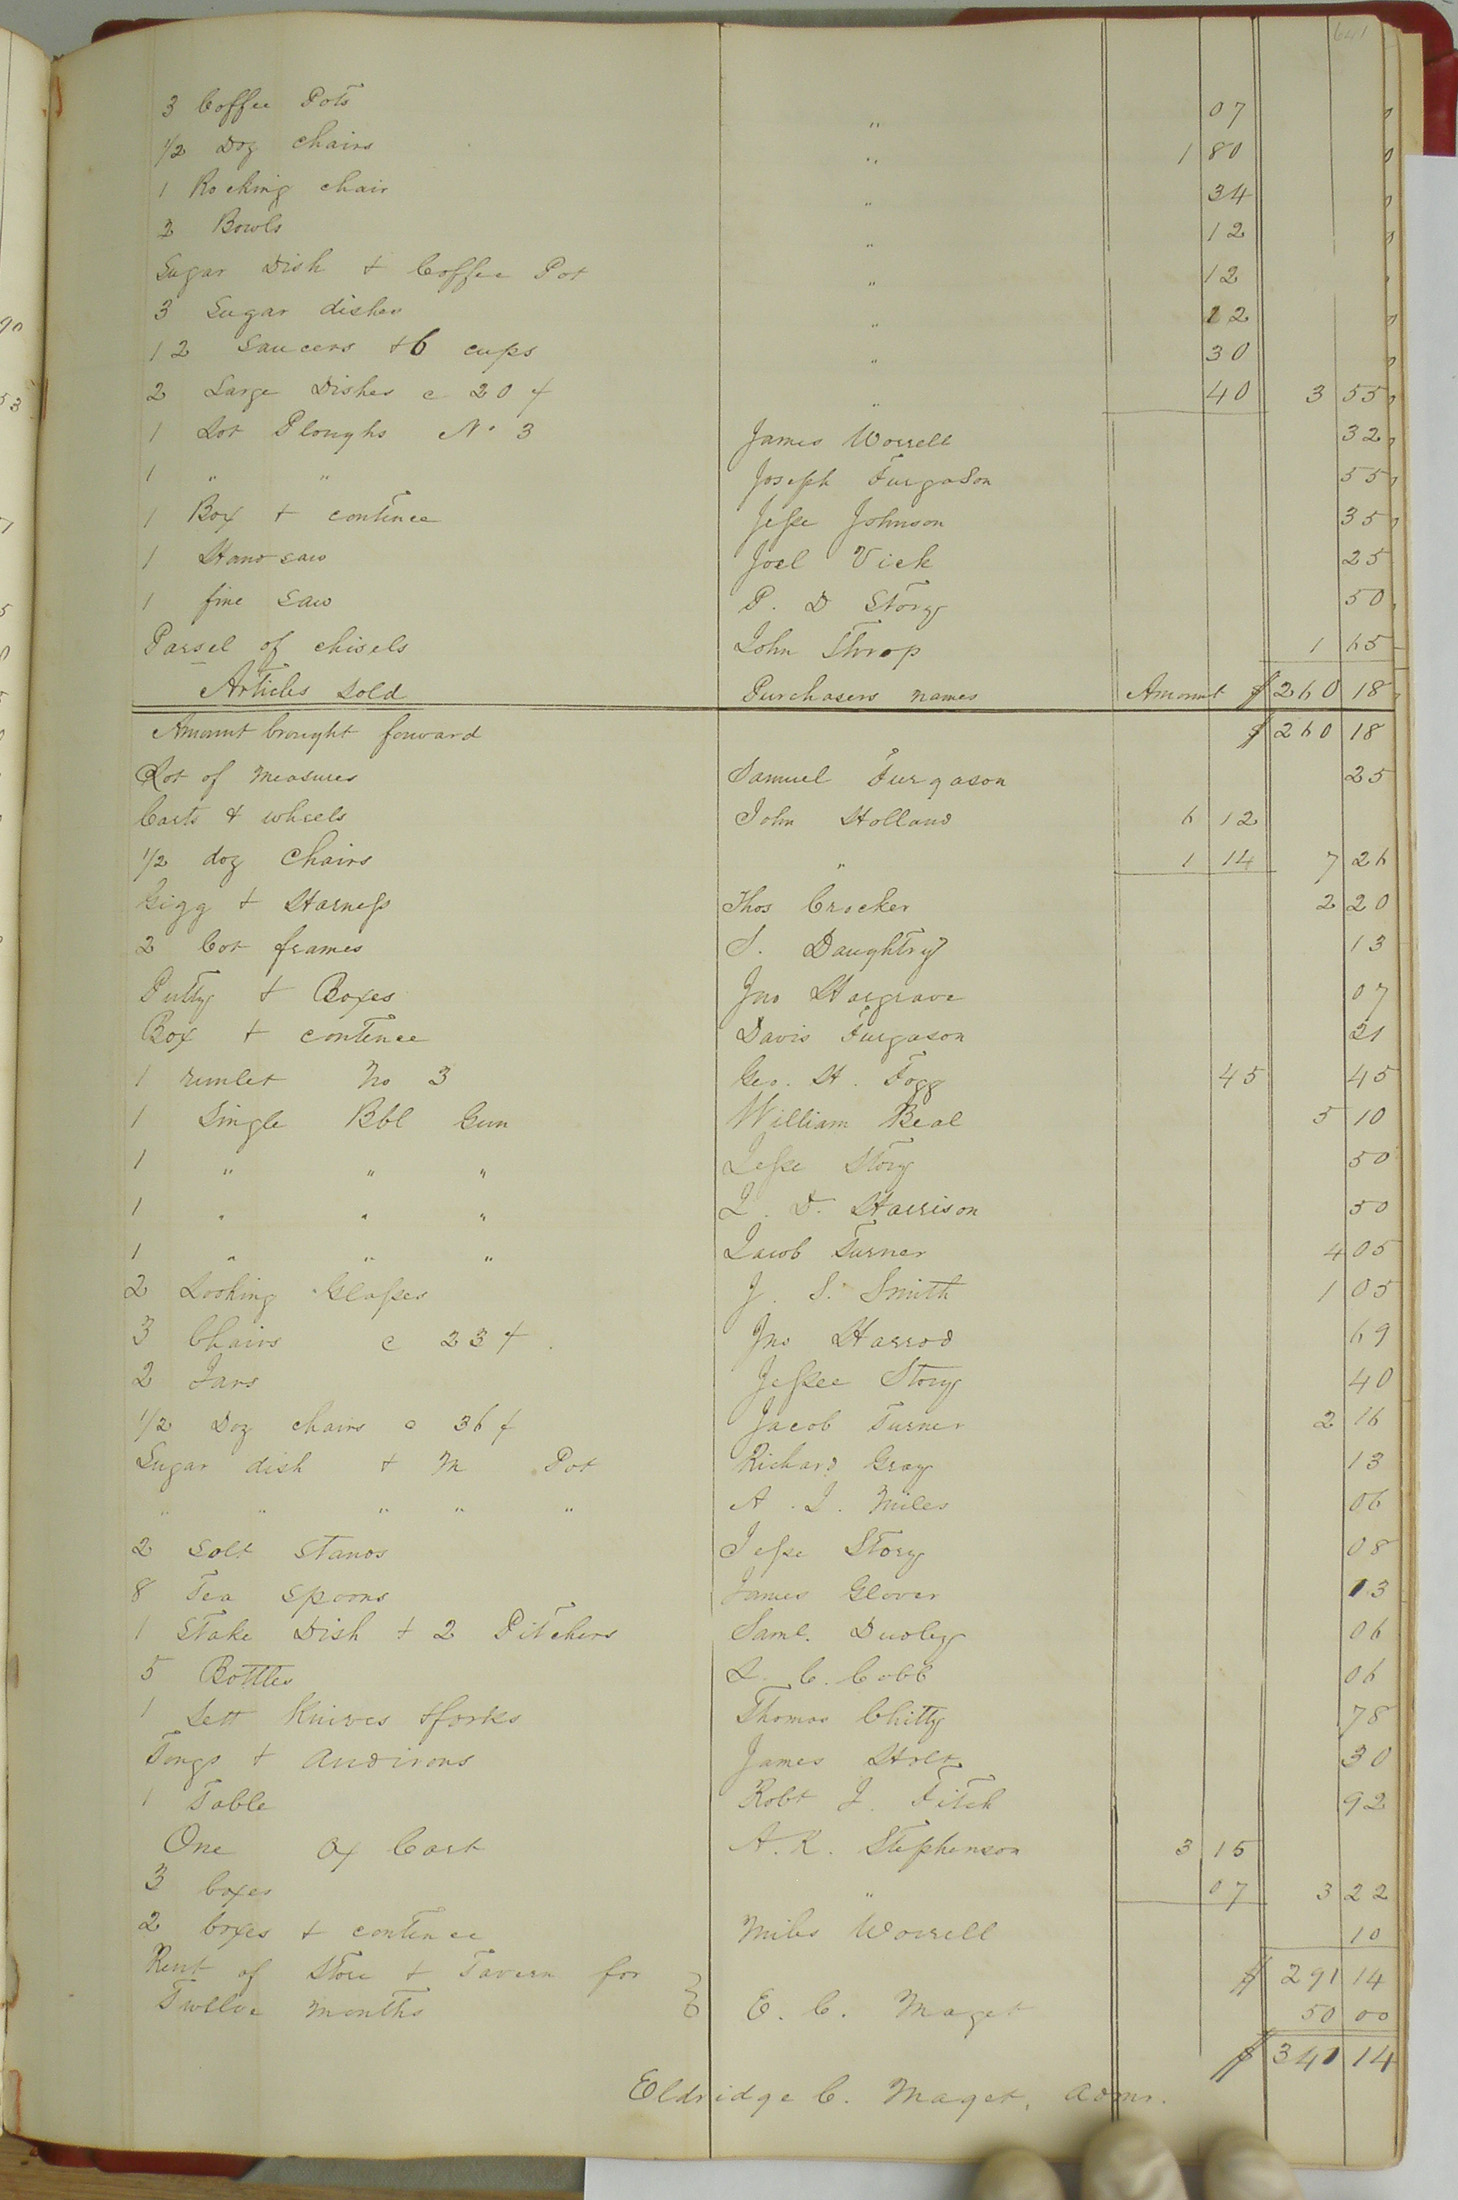 641
3 Coffee Pots " 07
1/2 Doz chairs " 1 80
1 Rocking chair " 34
2 Bowls " 12
Sugar Dish & Coffee Pot " 12
3 Sugar dishes " 12
12 Saucers & 6 cups " 30
2 Large Dishes c 20 ¢ " 40 3 55
1 Lot Ploughs No 3 James Worrell 32
1 " " Joseph Furgason 55
1 Box & contence Jesse Johnson 35
1 Hand saw Joel Vick 25
1 fine saw P. D Story 50
Parsel of chisels John Throp 1 65
Articles Sold Purchasers names Amount $ 260 18
Amount brought forward $ 260 18
Lot of Measures Samuel Furgason 25
Carts & wheels John Holland 6 12
1/2 doz Chairs " 1 14 7 26
Gigg & Harness Thos Crocker 2 20
2 Cot frames S. Daughtry 13
Putty & Boxes Jno Hargrave 07
Box & contence Davis Furgason 21
1 runlet No 3 Geo. H. Fogg 45 45
1 Single Bbl Gun William Beal 5 10
1 " " " Jesse Story 50
1 " " " J. D. Harrison 50
1 " " " Jacob Turner 4 05
2 Looking Glasses J. S. Smith 1 05
3 Chairs c 23 ¢. Jno Harrod 69
2 Jars Jessee Story 40
1/2 Doz chairs c 36 ¢ Jacob Turner 2 16
Sugar dish & M Pot Richard Gray 13
" " " " " A. J. Miles 06
2 Solt Stands Jesse Story 08
8 Tea Spoons James Glover 13
1 Stake Dish & 2 Pitchers Saml. Dudley 06
5 Bottles L. C. Cobb 06
1 Sett Knives & forks Thomas Chitty 78
Tongs & andirons James Holt 30
1 Table Robt J. Fitch 92
One Ox Cart A. R. Stephenson 3 15
3 boxes " 07 3 22
2 boxes & contence Miles Worrell 10
Rent of Store & Tavern for $ 291 14
Twelve months } E. C. Maget 50 00
$ 341 14
Eldridge C. Maget, Admr.